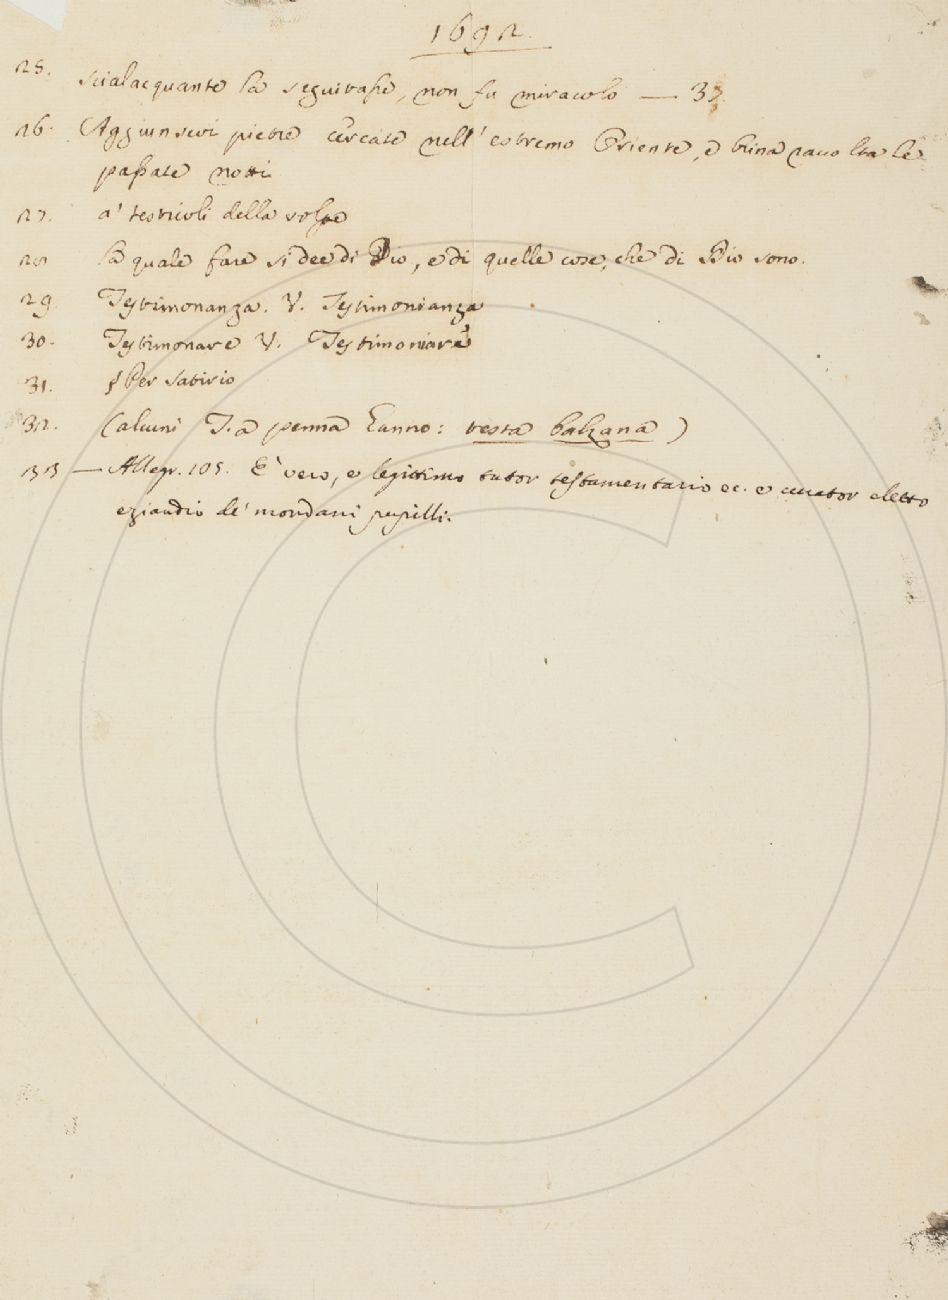 1692.
25. scialacquante la seguitasse, non fu miracolo — 37
26. Aggiunsevi pietre cercate nell' estremo Oriente, e brina raccolta le
passate notti
27. a' testicoli della volpe
28 la quale fare si dee di Dio, e di quelle cose, che di Dio sono.
29. Testimonanza. V. Testimonianza
30. Testimonare V. Testimoniare
31. Per Satirio
32. (alcuni T. a penna hanno: testa balzana)
33 — Allegr. 105. E' vero, e legittimo tutor testamentario ec. e curator eletto
eziandio de' mondani pupilli.